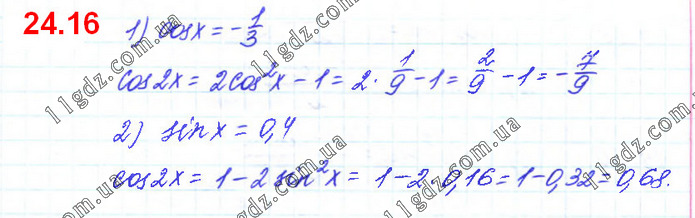 24.16
1) cosx = -1/3
cos2x = 2cos²x - 1 = 2·1/9 - 1 = 2/9 - 1 = -7/9
2) sinx = 0,4
cos2x = 1 - 2sin²x = 1 - 2·0,16 = 1 - 0,32 = 0,68.
11gdz.com.ua
11gdz.com.ua
11gdz.com.ua
11gdz.com.ua
11gdz.com.ua